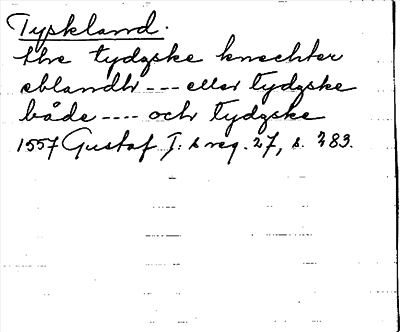 Tyskland.
the tydzske knechter
eblandh --- eller tydzske
både ---- och tydzske
1557 Gustaf I:s reg. 27, s. 383.